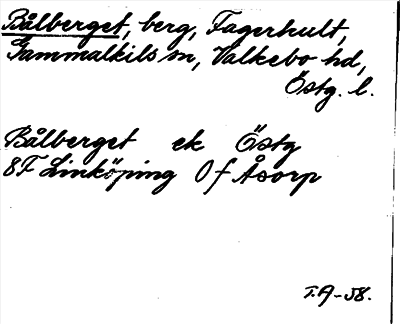 Bålberget, berg, Fagerhult,
Gammalkils sn, Valkebo hd,
Östg. l.
Bålberget ek Östg
8F Linköping 0 f Åsorp
T.A-58.